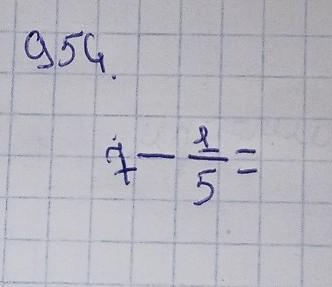 954.
7 - 1/5 =